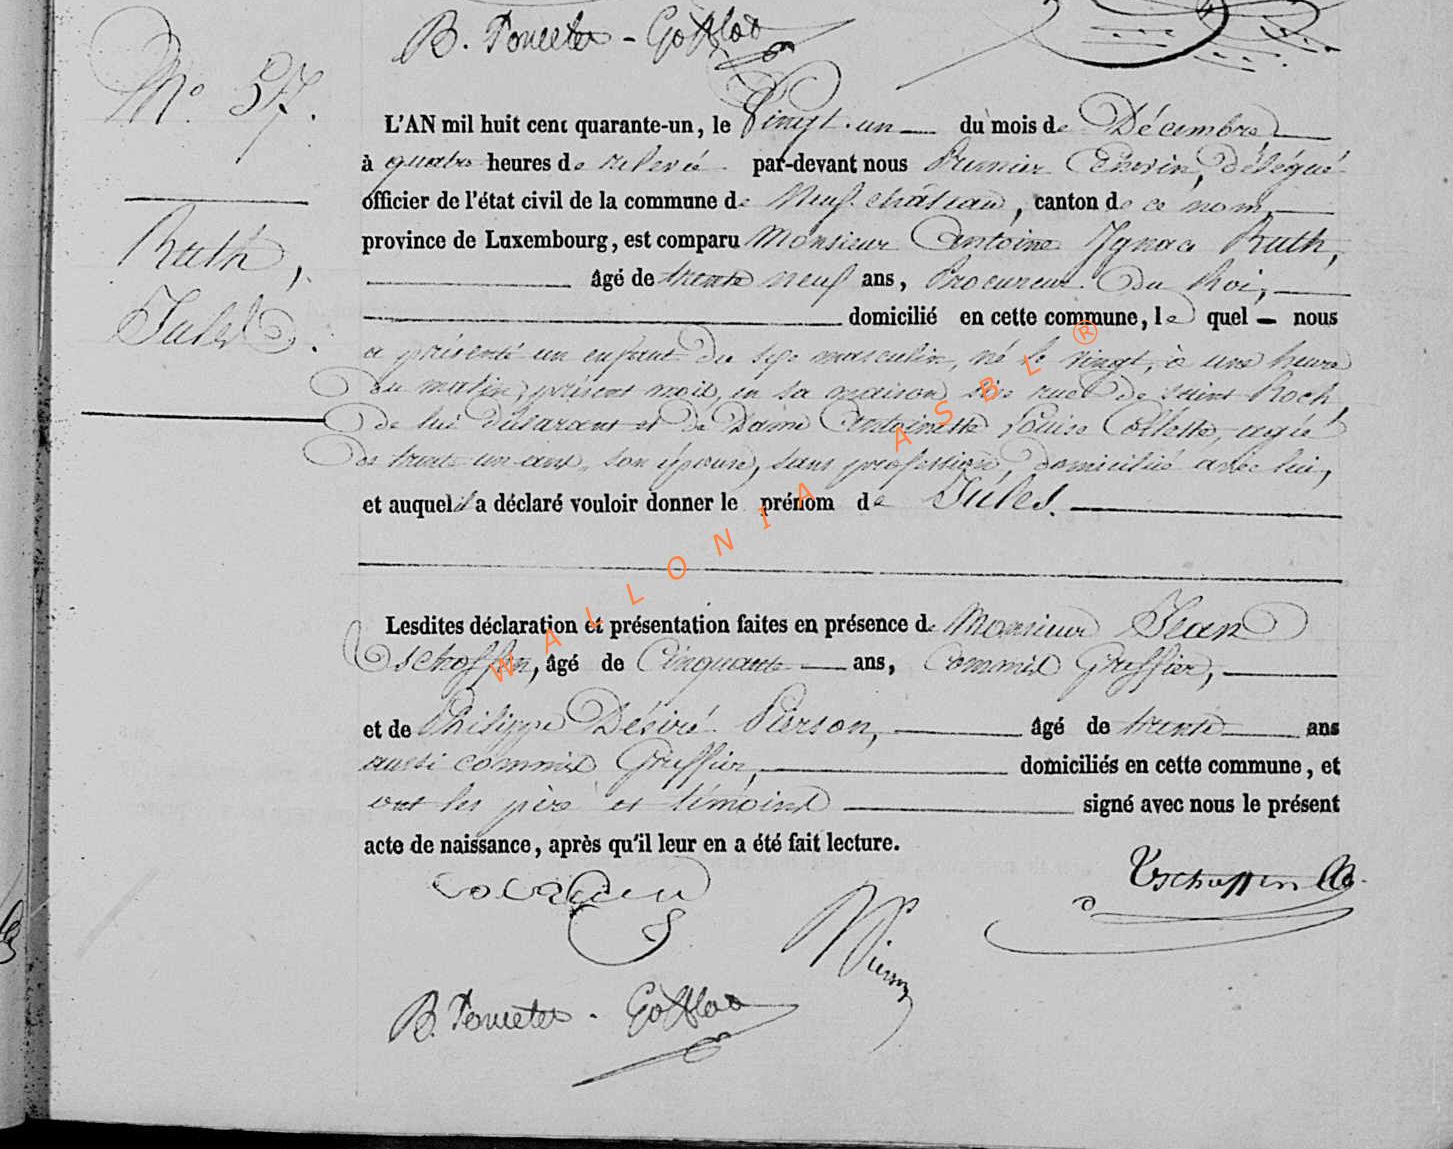 B. Poncelet - Gofflot
N° 57.
L'AN mil huit cent quarante-un, le Vingt-un du mois de Décembre
à quatre heures de relevée par-devant nous Premier Echevin, délégué
officier de l'état civil de la commune de Neufchâteau, canton de ce nom,
province de Luxembourg, est comparu Monsieur Antoine Ignace Ruth,
âgé de trente neuf ans, Procureur du Roi,
domicilié en cette commune, le quel nous
a présenté un enfant du sexe masculin, né le vingt, à une heure
du matin, présent mois, en sa maison, sise rue de saint Roch,
de lui déclarant et de Dame Antoinette Louise Collette, agée
de trente un ans, son épouse, sans profession, domiciliée avec lui,
et auquel il a déclaré vouloir donner le prénom de Jules.
Ruth,
Jules.
Lesdites déclaration et présentation faites en présence de Monsieur Jean
Tschoffen, âgé de Cinquante ans, Commis Greffier,
et de Philippe Désiré Pierson, âgé de trente ans
aussi commis Greffier, domiciliés en cette commune, et
ont les père et témoins signé avec nous le présent
acte de naissance, après qu'il leur en a été fait lecture.
Tschoffen
Pierson
B. Poncelet - Gofflot
WALLONIA ASBL ®